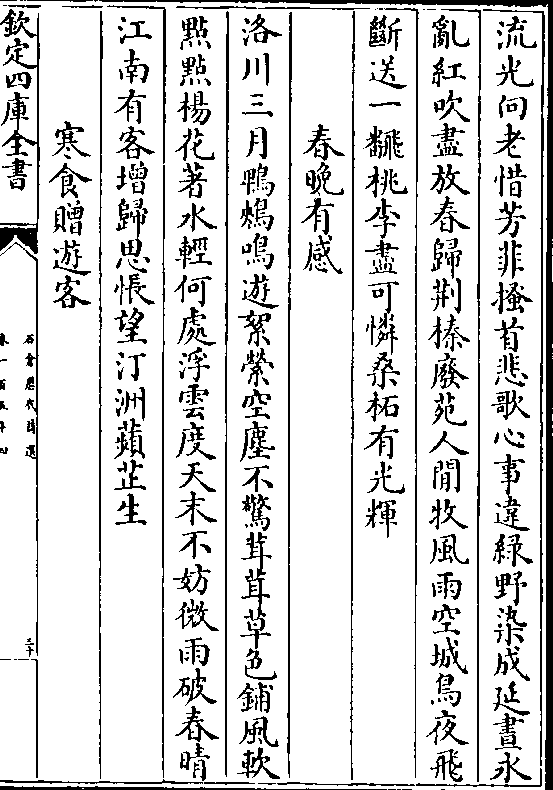 流光向老惜芳菲搔首悲歌心事違綠野染成延晝永
亂紅吹盡放春歸荆榛廢苑人閒牧風雨空城鳥夜飛
斷送一飜桃李盡可憐桑柘有光輝
春晚有感
洛川三月鴨鵊鳴遊絮縈空塵不驚茸茸草色鋪風軟
點點楊花著水輕何處浮雲度天末不妨微雨破春晴
江南有客增歸思悵望汀洲蘋芷生
寒食贈遊客
欽定四庫全書
石倉歷代詩選